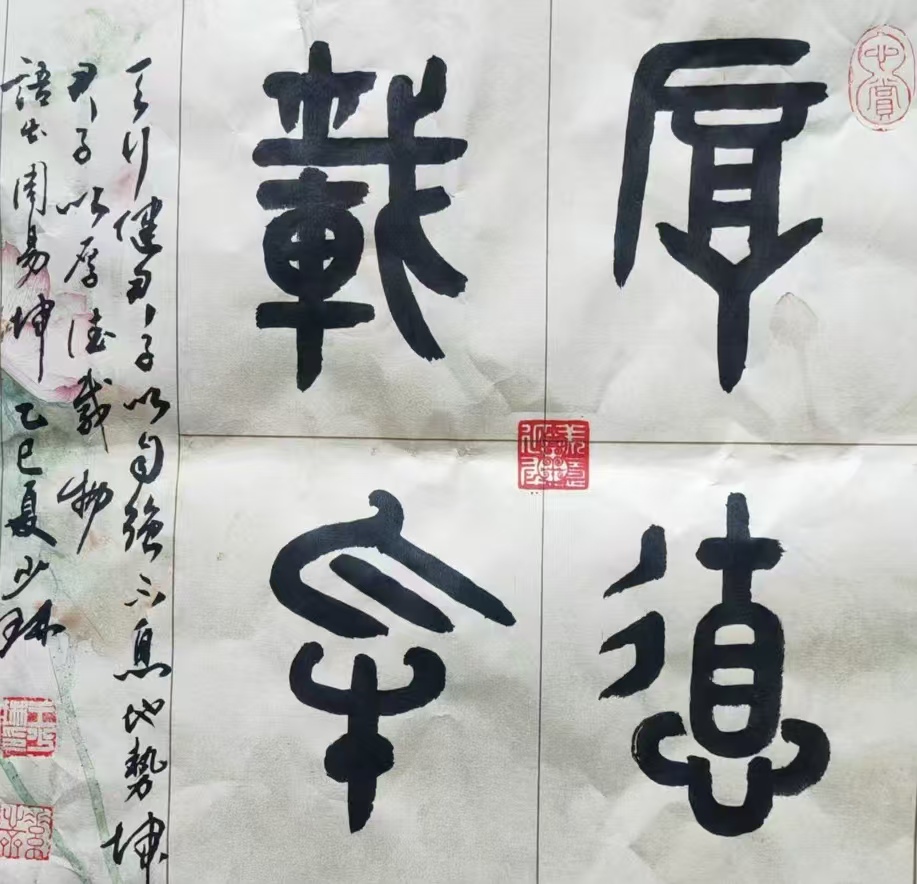 心賞
厚德
載物
天行健君子以自強不息地勢坤
君子以厚德載物
語出周易坤乙巳夏少